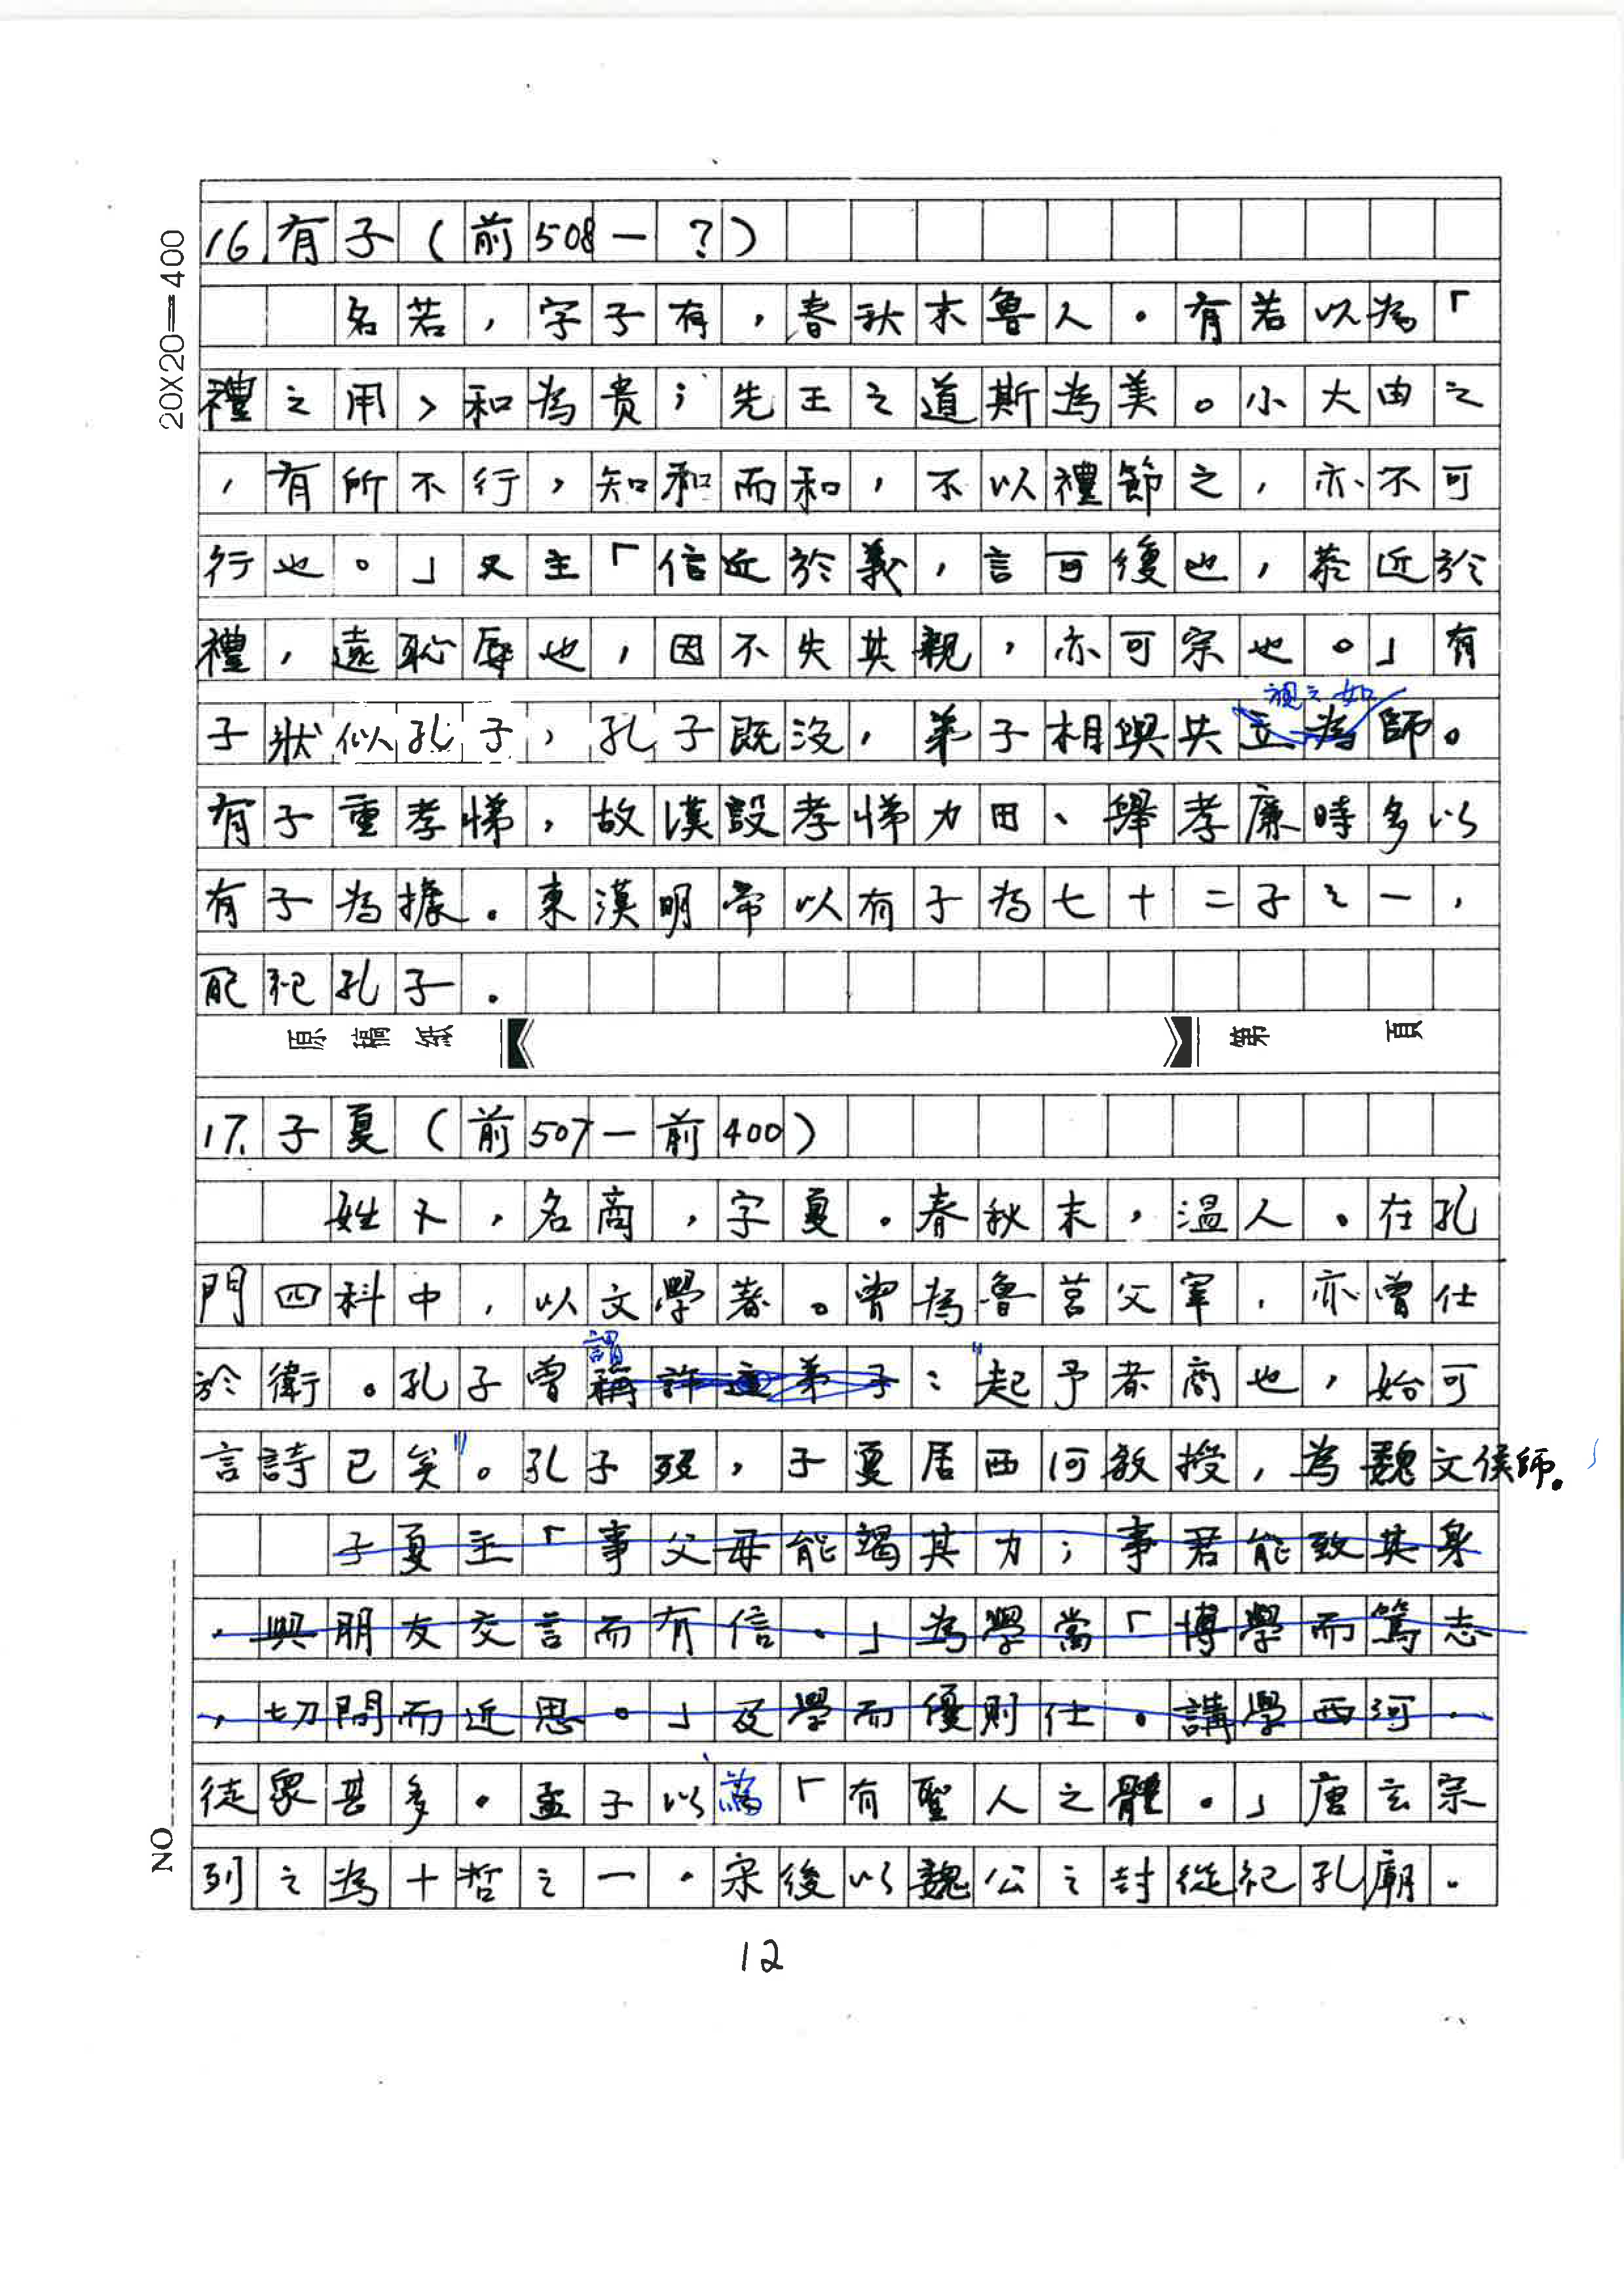 16.有子（前508－？）
名若，字子有，春秋末魯人。有若以為「
禮之用，和為貴；先王之道斯為美。小大由之
，有所不行，知和而和，不以禮節之，亦不可
行也。」又主「信近於義，言可復也，恭近於
禮，遠恥辱也，因不失其親，亦可宗也。」有
視之如
子狀似孔子，孔子既沒，弟子相與共立為師。
有子重孝悌，故漢設孝悌力田、舉孝廉時多以
有子為據。東漢明帝以有子為七十二子之一，
配祀孔子。
原稿紙 第 頁
17.子夏（前507－前400）
姓卜，名商，字夏。春秋末，溫人。在孔
門四科中，以文學著。曾為魯莒父宰，亦曾仕
謂
於衛。孔子曾稱許這弟子："起予者商也，始可
言詩已矣"。孔子歿，子夏居西河教授，為魏文侯師。
子夏主「事父母能竭其力；事君能致其身
，與朋友交言而有信。」為學當「博學而篤志
，切問而近思。」及學而優則仕。講學西河，
徒眾甚多。孟子以為「有聖人之體。」唐玄宗
列之為十哲之一。宋後以魏公之封從祀孔廟。
12
20X20=400
NO